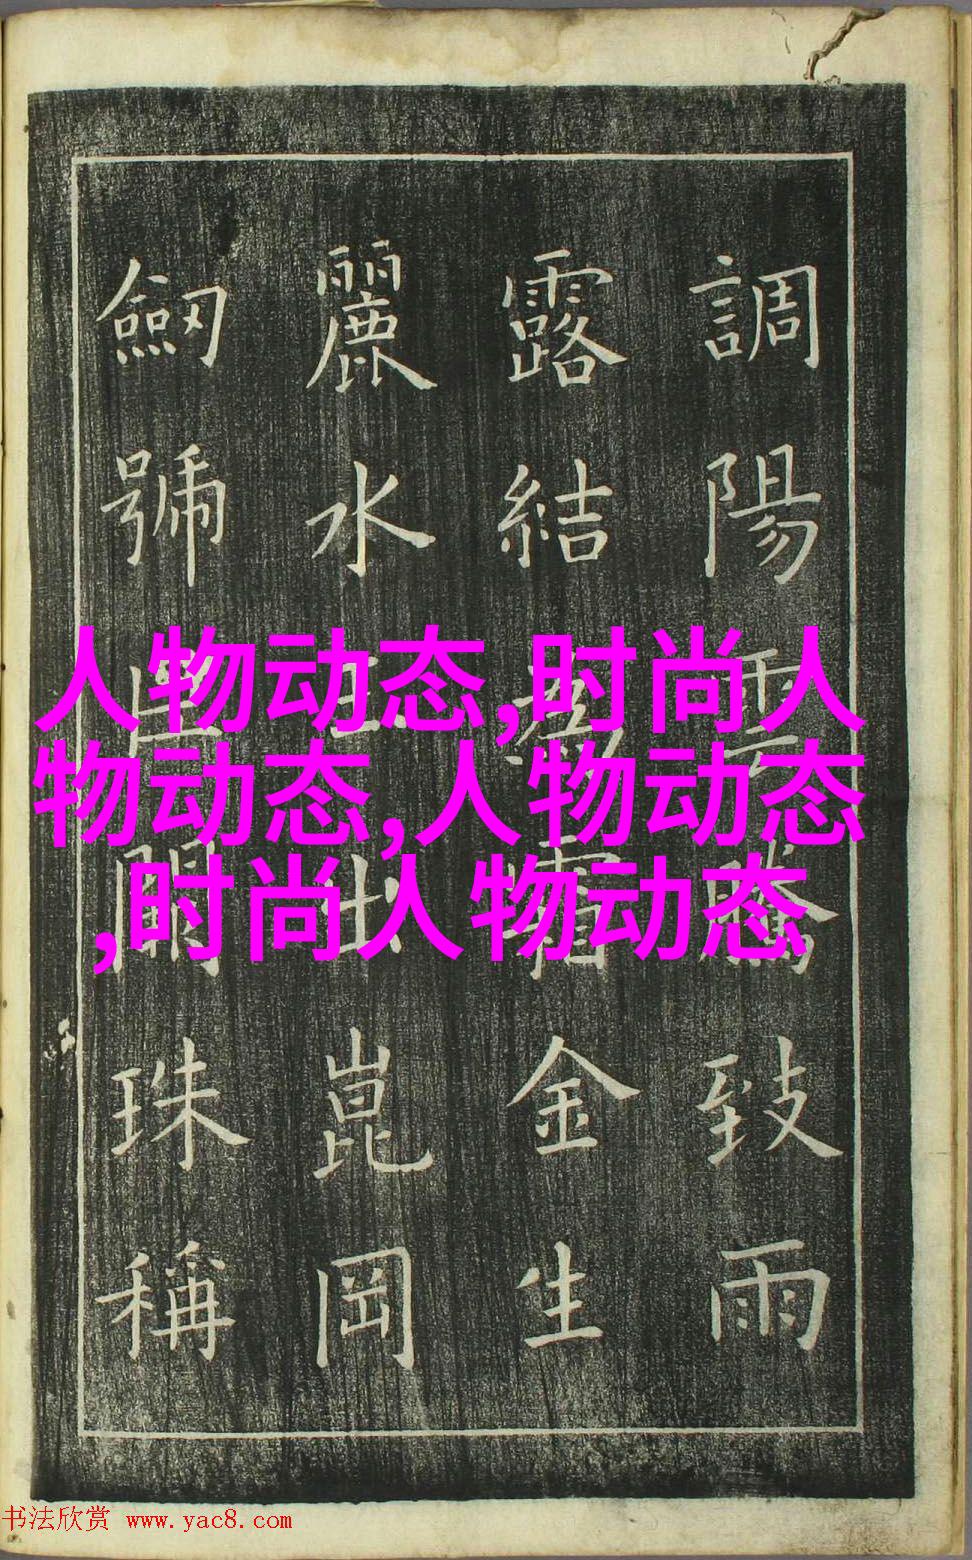 調陽雲騰致雨
露結爲霜金生
麗水玉出崑岡
劒號巨闕珠稱
人物动态,时尚人
物动态,人物动态
,时尚人物动态
书法欣赏 www.yac8.com